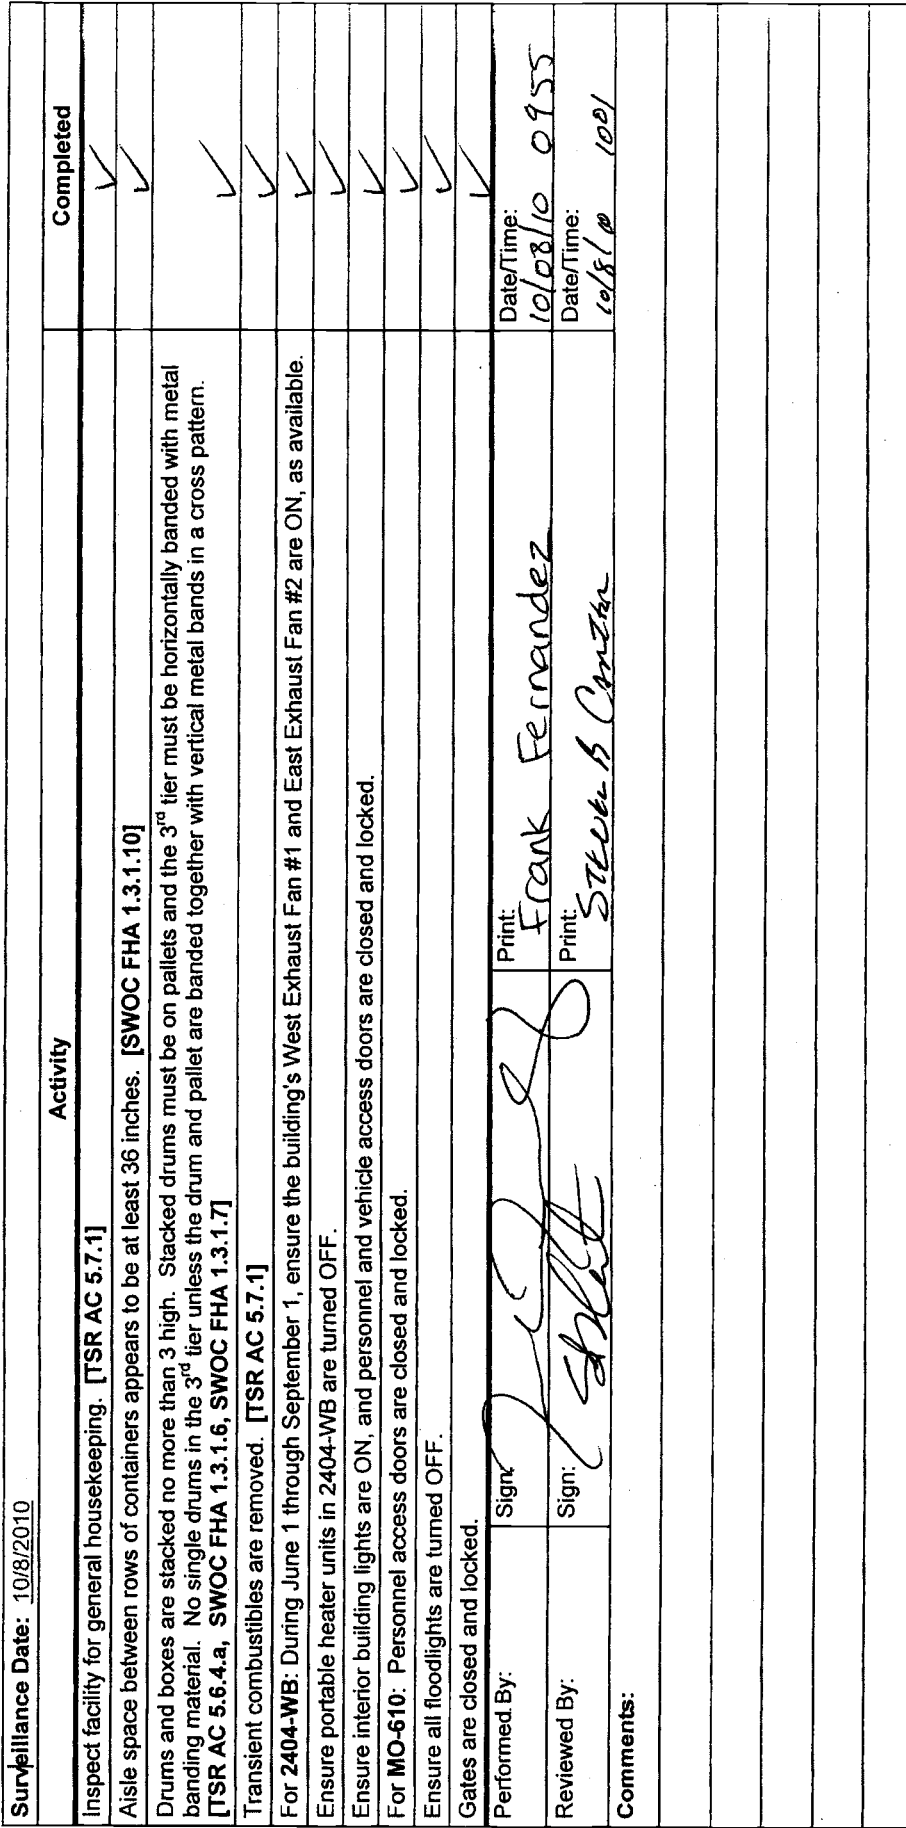 Surveillance Date: 10/8/2010
Activity
Completed
Inspect facility for general housekeeping. [TSR AC 5.7.1] ✓
Aisle space between rows of containers appears to be at least 36 inches. [SWOC FHA 1.3.1.10] ✓
Drums and boxes are stacked no more than 3 high. Stacked drums must be on pallets and the 3rd tier must be horizontally banded with metal
banding material. No single drums in the 3rd tier unless the drum and pallet are banded together with vertical metal bands in a cross pattern.
[TSR AC 5.6.4.a, SWOC FHA 1.3.1.6, SWOC FHA 1.3.1.7] ✓
Transient combustibles are removed. [TSR AC 5.7.1] ✓
For 2404-WB: During June 1 through September 1, ensure the building's West Exhaust Fan #1 and East Exhaust Fan #2 are ON, as available. ✓
Ensure portable heater units in 2404-WB are turned OFF. ✓
Ensure interior building lights are ON, and personnel and vehicle access doors are closed and locked. ✓
For MO-610: Personnel access doors are closed and locked. ✓
Ensure all floodlights are turned OFF. ✓
Gates are closed and locked. ✓
Performed By:
Sign:
Print:
Frank Fernandez
Date/Time:
10/08/10 0955
Reviewed By:
Sign:
Print:
Date/Time:
10/8/10 1001
Comments: